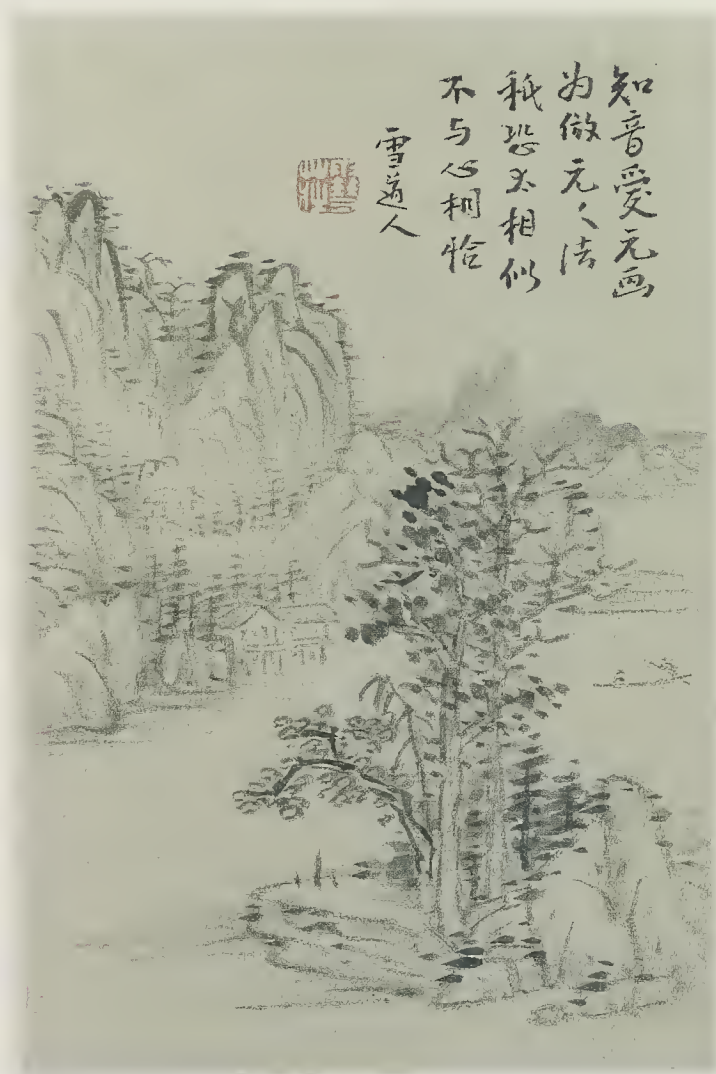 知音爱元画
为倣元々法
秖恐太相似
不与心相恰
雪道人